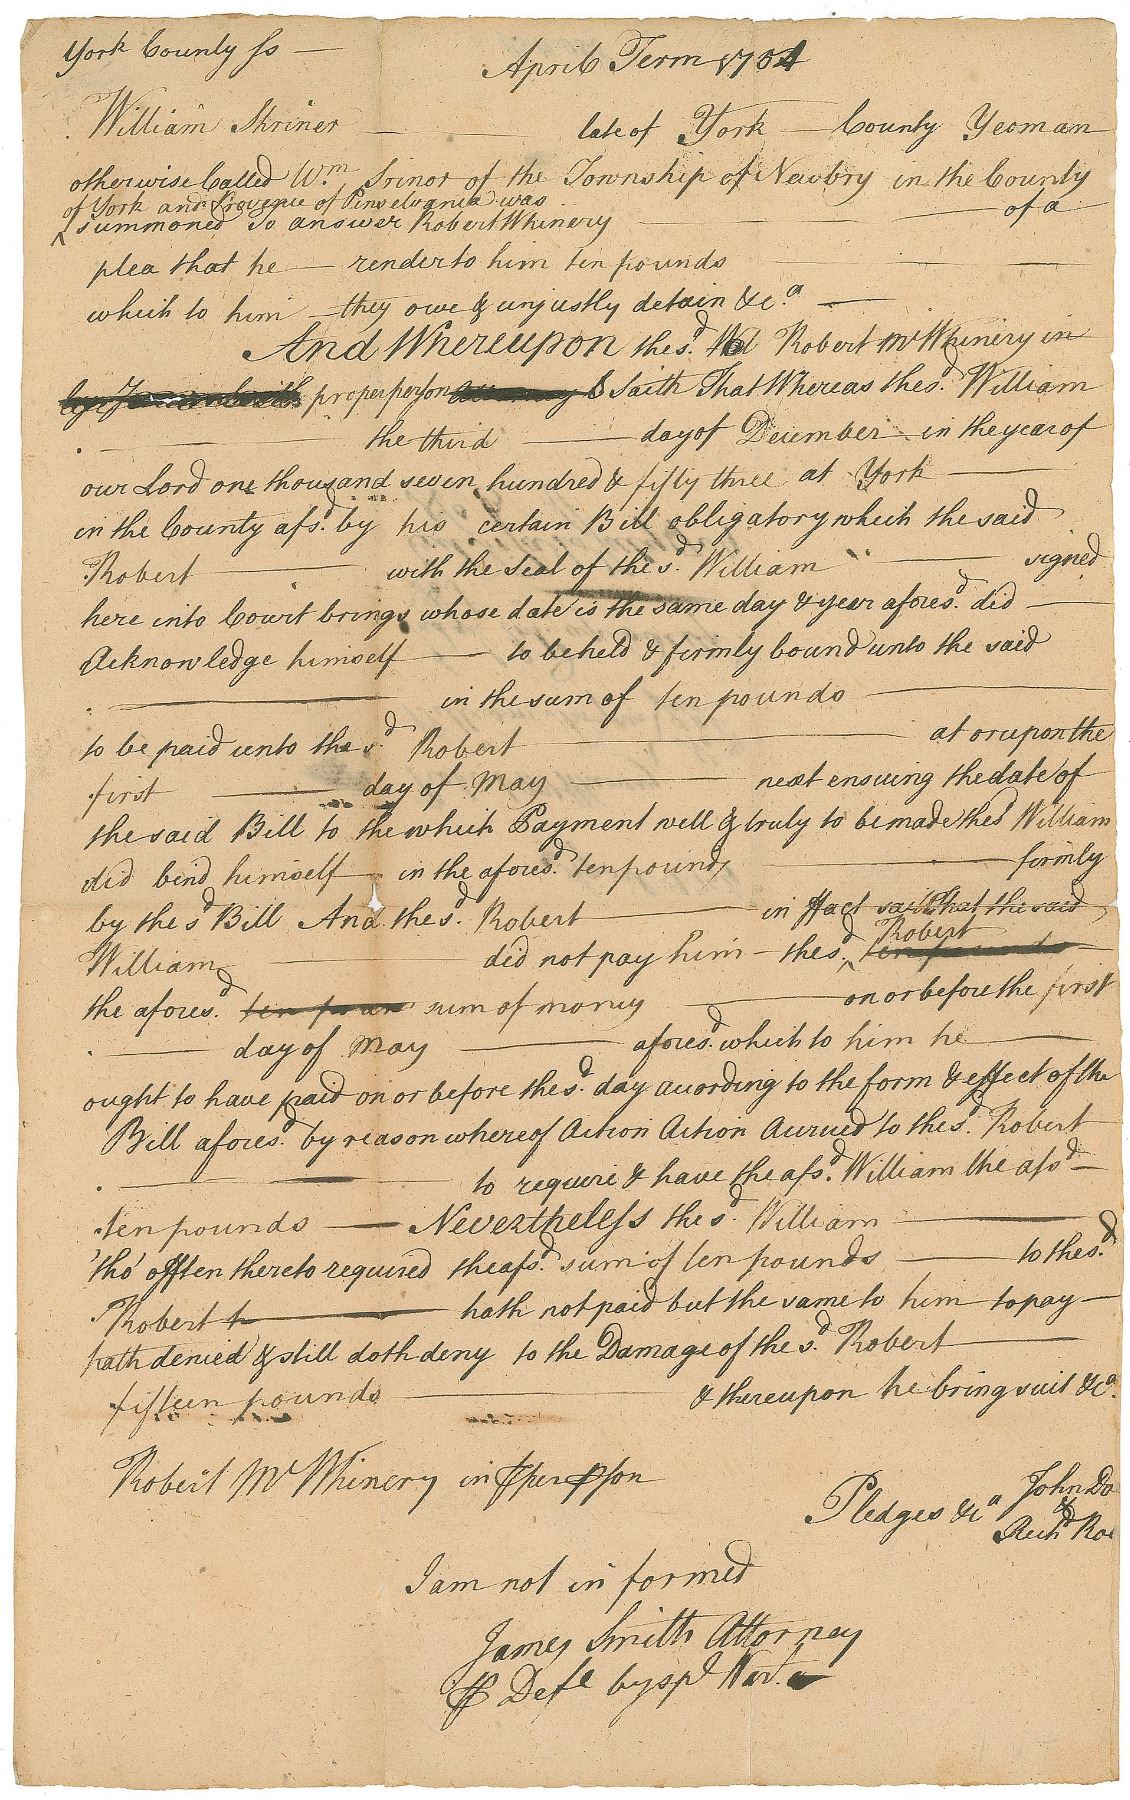 York County ss —
April Term 1754
William Skriner — late of York — County Yeoman
otherwise Called Wm. Srinor of the Township of Newbry in the County
of York and Provence of Penselvania was
summoned to answer Robert Whinery — of a
plea that he — render to him ten pounds —
which to him — they owe & unjustly detain &ca. —
And Whereupon the sd. Robert McWhinery in
proper person Saith That Whereas the sd. William
— the third — day of December in the year of
our Lord one thousand seven hundred & fifty three at York —
in the County afsd. by his certain Bill obligatory which the said
Robert — with the Seal of the sd. William — signed
here into Court brings whose date is the same day & year aforesd. did —
Acknowledge himself — to be held & firmly bound unto the said
— in the sum of ten pounds —
to be paid unto the sd. Robert — at or upon the
first — day of May — next ensuing the date of
the said Bill to the which Payment well & truly to be made the sd William
did bind himself — in the aforesd. ten pounds — firmly
by the sd Bill And the sd. Robert — in ffact saith that the said
William — did not pay him — the sd. Robert
the aforesd. ten poun sum of money — on or before the first
— day of May — aforesd. which to him he —
ought to have paid on or before the sd. day according to the form & effect of the
Bill aforesd. by reason whereof Action Action Accrued to the sd. Robert
— to require & have the afsd. William the afsd —
ten pounds — Nevertheless the sd. William —
'tho' offten thereto required the afsd. sum of ten pounds — to the sd.
Robert t — hath not paid but the same to him to pay —
hath denied & still doth deny to the Damage of the sd. Robert —
fifteen pounds — & thereupon he bring suit &ca.
Robert Mc Whinery in pper pson
Pledges &ca John Do
&
Richd Roe
I am not informed
James Smith Attorney
Deft by spl War.